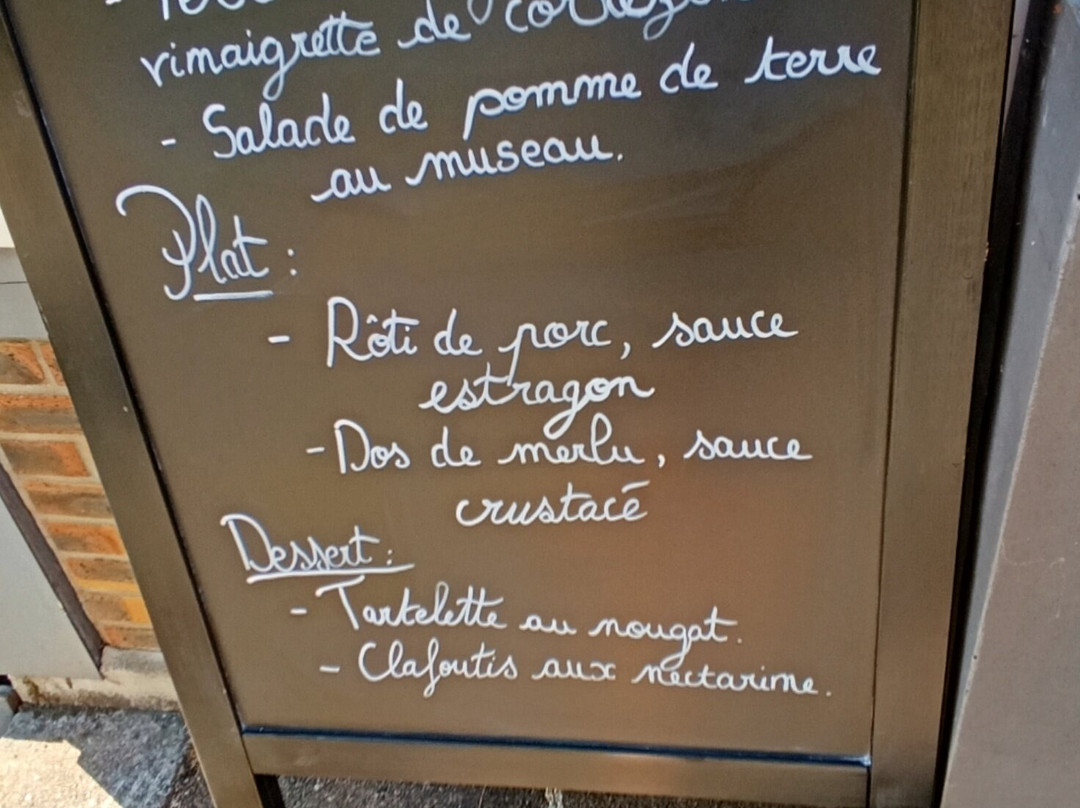 vinaigrette de
- Salade de pomme de terre
au museau.
Plat :
- Rôti de porc, sauce
estragon
- Dos de merlu, sauce
crustacé
Dessert :
- Tartelette au nougat.
- Clafoutis aux nectarine.